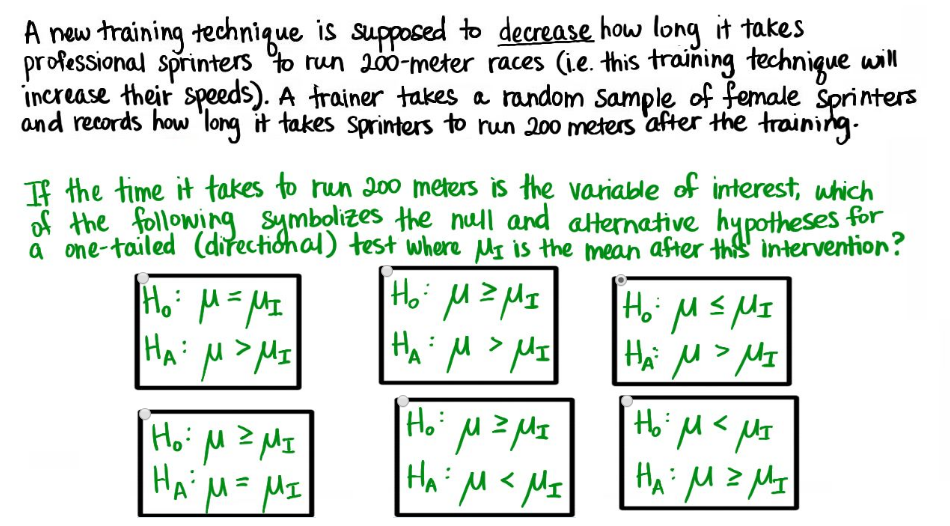 A new training technique is supposed to decrease how long it takes
professional sprinters to run 200-meter races (i.e. this training technique will
increase their speeds). A trainer takes a random sample of female sprinters
and records how long it takes sprinters to run 200 meters after the training.
If the time it takes to run 200 meters is the variable of interest, which
of the following symbolizes the null and alternative hypotheses for
a one-tailed (directional) test where μI is the mean after this intervention?
H₀: μ = μI
HA: μ > μI
H₀: μ ≥ μI
HA: μ > μI
H₀: μ ≤ μI
HA: μ > μI
H₀: μ ≥ μI
HA: μ = μI
H₀: μ ≥ μI
HA: μ < μI
H₀: μ < μI
HA: μ ≥ μI